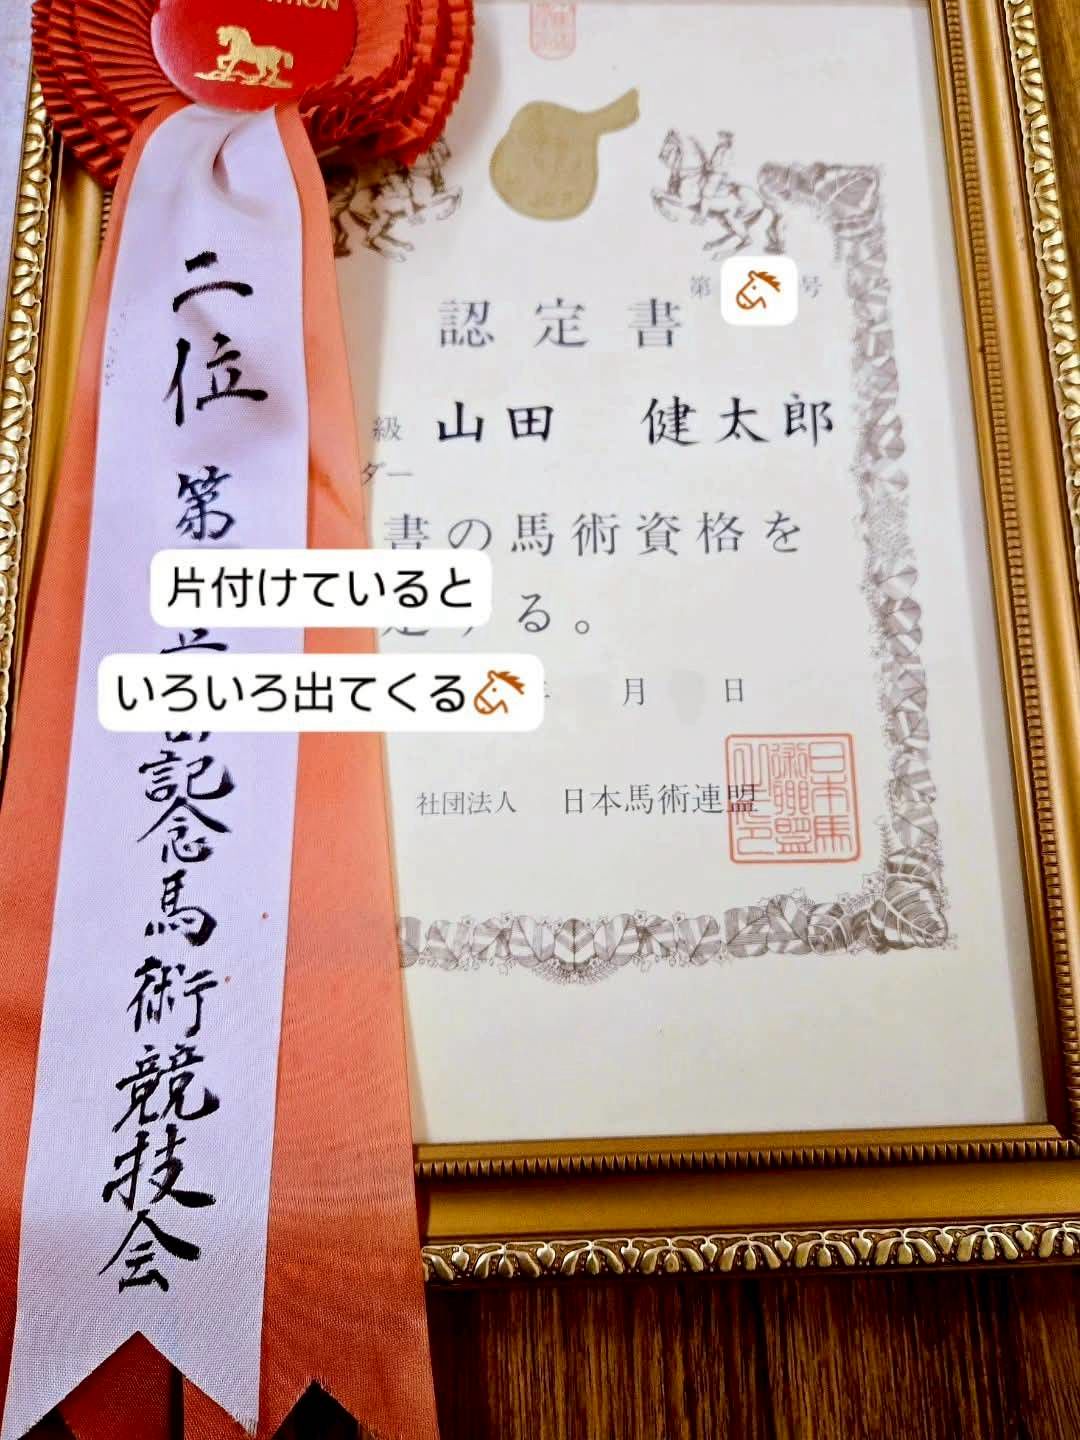 二位
第
記念馬術競技会
認定書
第
号
級 山田 健太郎
ダー
書の馬術資格を
する。
月 日
社団法人 日本馬術連盟
片付けていると
いろいろ出てくる